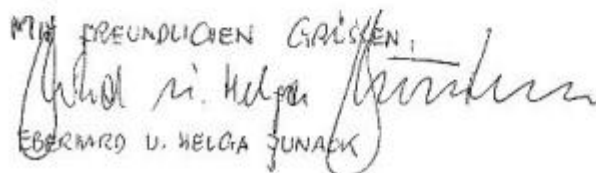 MIT FREUNDLICHEN GRÜSSEN,
u. Helga
EBERHARD U. HELGA JUNACK